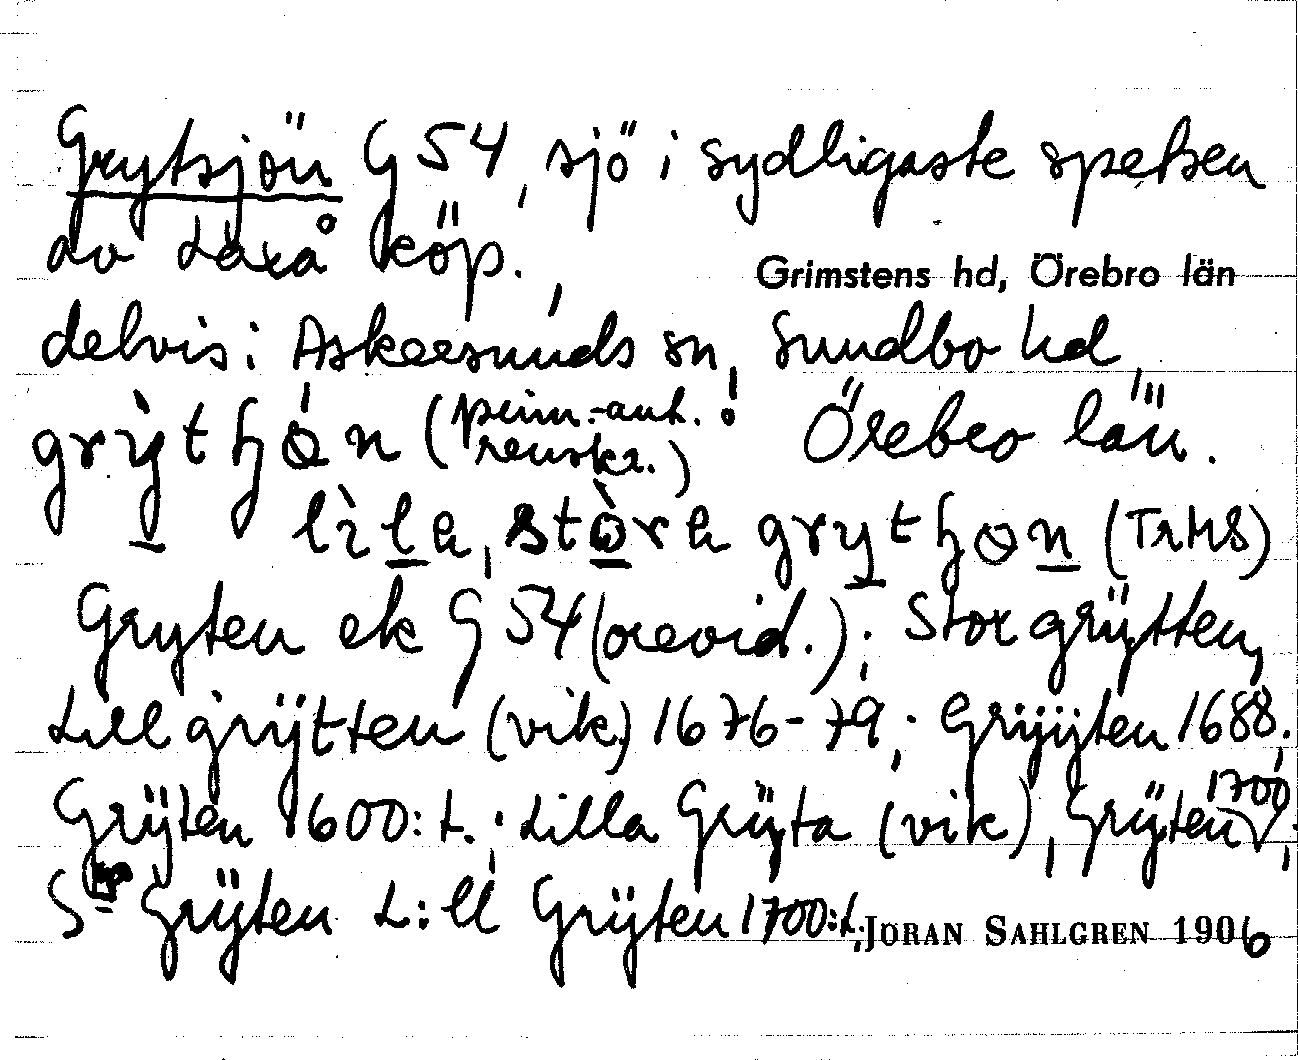 Grytsjön G 54, sjö i sydligaste spetsen
av Laxå köp.,
Grimstens hd, Örebro län
delvis i Askersunds sn, Sundbo hd,
Örebro län.
grỳtɧón (prim.-aut. ! renskr.)
lìla, stòra grytɧon (TrHS)
Gryten ek G 54 (orevid.); Stor grÿtten,
Lill grÿtten (vik) 1676-79; Grÿÿten 1688;
Grÿten 1600:t.; Lilla Grÿta (vik), Grÿten 1700;
Sr Grÿten L:ll Grÿten 1700:t.;
JÖRAN SAHLGREN 1906